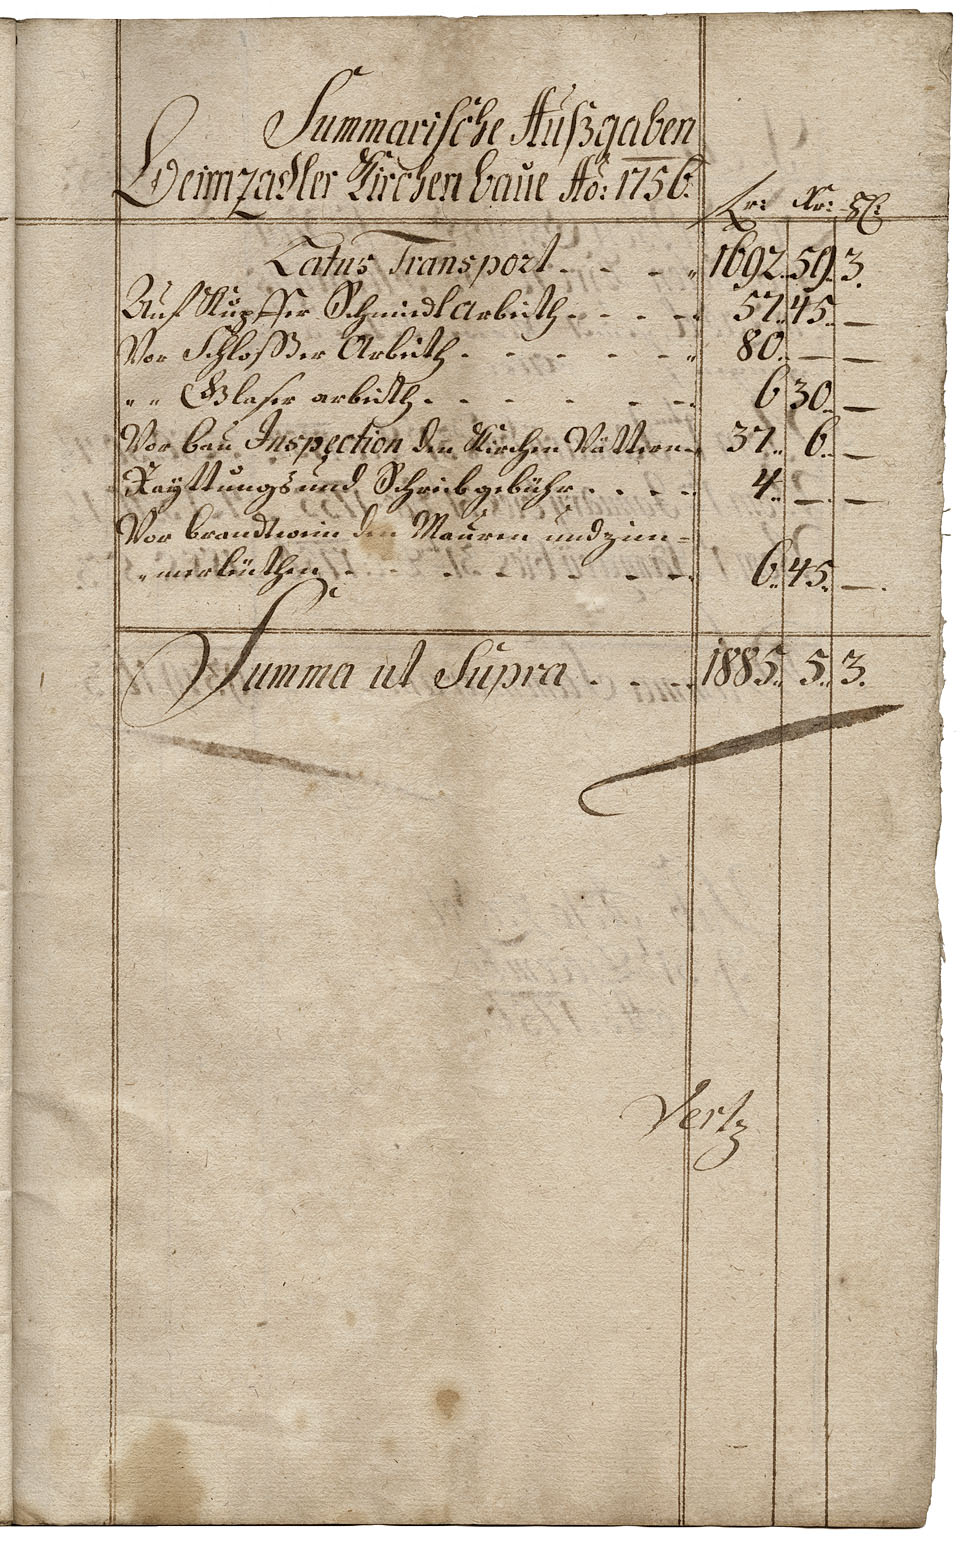 Summarische Außgaben
Weimzadler Kirchen baue Ao: 1756.
fr: Kr: hl:
Latus Transport - - - " 1692. 59. 3.
Auf Kupffer Schmidt Arbeith - - - - 57. 45. —
Vor Schlosser Arbeith - - - - - " 80. — —
" " Glaser arbeith - - - - - - 6 30. —
Vor bau Inspection den Kirchen Vättern - 37. 6. —
Rayttungs und Schreibgebühr - - - - 4. — —
Vor brandtwein den Mauren und zim=
"merleuthen - - - - - - - 6. 45. —
Summa ut Supra - - - - 1885. 5. 3.
Vertz